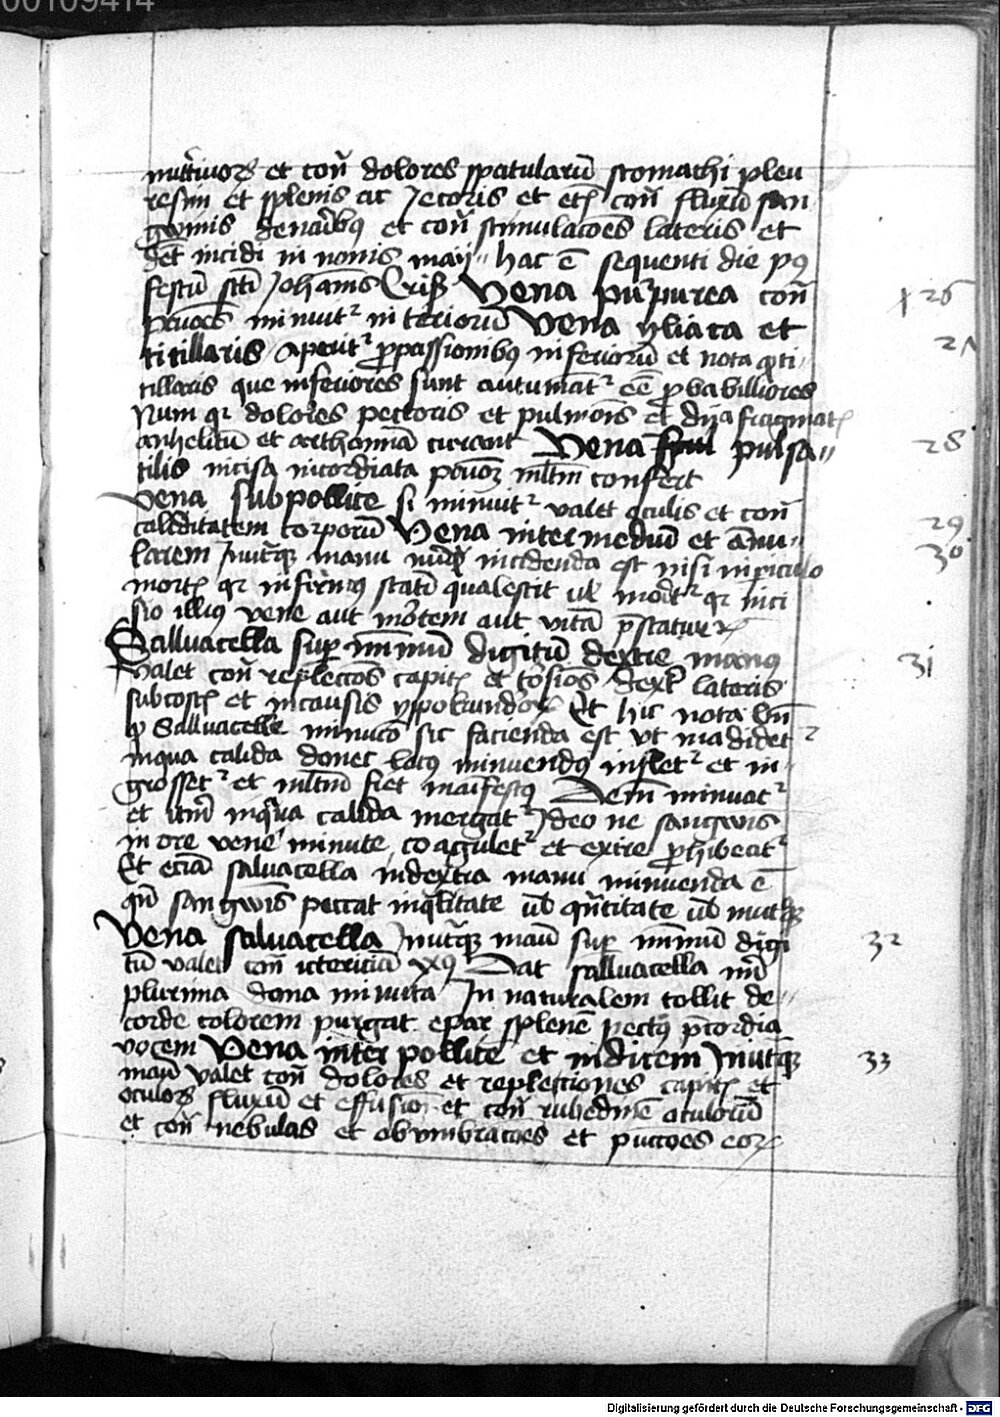 00109414
nut͛tiuorꝝ et con̄ dolores spatularū stomachi pleu
resim et splenis ac Jecoris et etꝫ con̄ fluxū san
gwinis denarībꝯ et con̄ stimulacoēs lateris et
dēt incidi in nonis maij hac ē sequenti die pꝯ
festū sctī Johannis Vena purpurea con̄
minuitᷣ interiorū Vena yliaca et
titillaris Aperitᷣ ꝓpassionibꝯ inferiorū et nota ꝙ ti
tillaris que inferiores sunt autumātᷣ eē ꝓbabilliores
Num qꝛ dolores pectoris et pulmonis et dyafragmatꝭ
anhelitū et arthomā curant Vena pulsa
tilis incisa incordiata ml̄tm confert
Vena sub pollice si minuitᷣ valet oculis et con̄
caliditatem corporū Vena inter mediū et ānu
larem Jnutᷓꝫ manu nūqᷓ incidenda est nisi in ꝑiculo
mortꝭ qꝛ infirmꝯ statī qualescit ul̄ moritᷣ qꝛ inci
sio illiꝯ vene aut mortem aut vitā
Salluacella suꝑ mīmū digitū dextre manꝯ
Valet con̄ replecoēs capitꝭ et dext͛ lateris
subcostꝭ et incausis ypokundrorꝝ Et hic nota
ꝙ Salluacelle minucō sic facienda est vt madidetᷣ
inqua calida donec locꝯ minuendꝯ infletᷣ et in
grossetᷣ et ml̄tm fiet maīfestꝯ Dein minuatᷣ
et itm̄ inqua calida mergatᷣ Jdeo ne sangwis
in ore vene minute coaguletᷣ et exire ꝓhibeatᷣ
Et eciā saluacella indextra manu minuenda ē
qn̄ sangwis peccat inqualitate ul̄ qn̄titate ul̄ inutᷓꝫ
Vena saluacella Jnutᷓꝫ manu suꝑ mīmū digi
tū valet con̄ ictericiā Dat salluacella
plurima dona minuta Jn naturalem tollit de
corde colorem purgat epar splenē pectꝯ p̄cordia
vocem Vena inter pollicē et indicem Jnutᷓꝫ
manu valet con̄ dolores et replectiones capitꝭ et
oculorꝝ fluxū et effusion̄ et con̄ rubedinē oculorū
et con̄ nebulas et obvmbracoēs et puctoēs eorꝝ
26
28
29
30
31
32
33
Digitalisierung gefördert durch die Deutsche Forschungsgemeinschaft - DFG